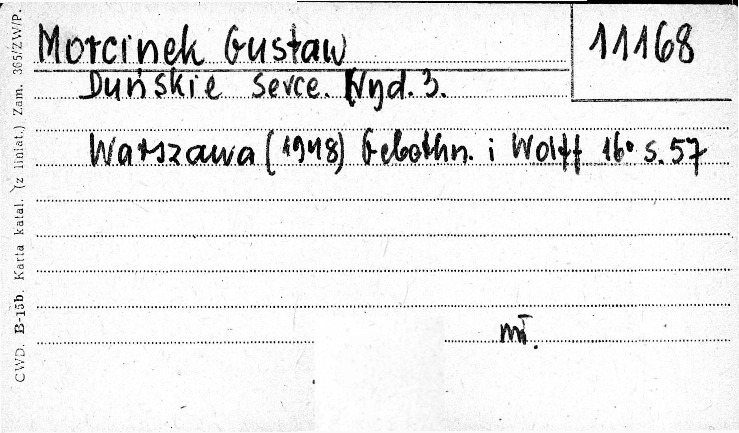 Morcinek Gustaw
11168
Duńskie serce. Wyd. 3.
Warszawa (1948) Gebethn. i Wolff 16° s. 57
mł.
CWD. B-15b. Karta katal. (z liniat.) Zam. 365/ZW/P.